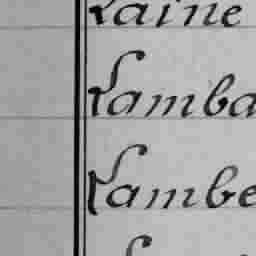 Laine
Lamba
Lambe